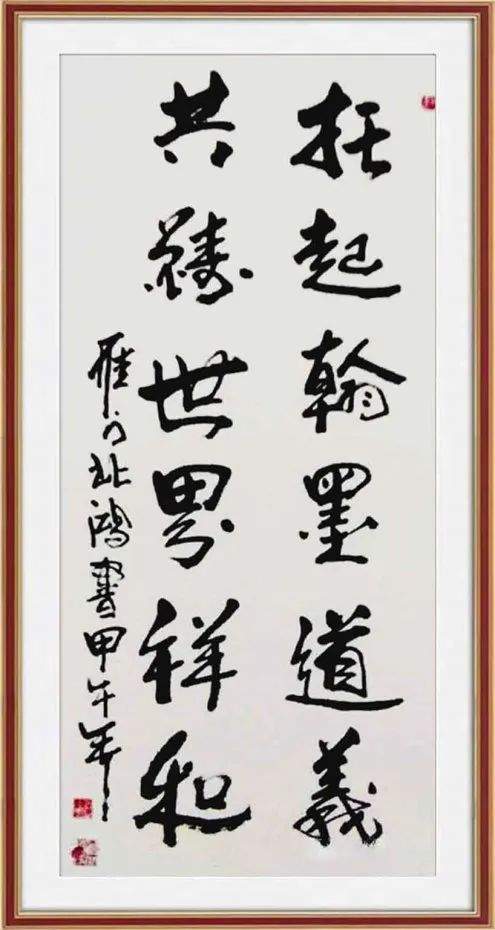 托起翰墨道義
共鑄世界祥和
雁门北鴻書甲午年